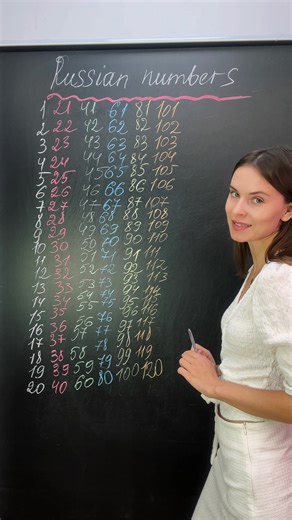 Russian numbers
1 21 41 61 81 101
2 22 42 62 82 102
3 23 43 63 83 103
4 24 44 64 84 104
5 25 45 65 85 105
6 26 46 66 86 106
7 27 47 67 87 107
8 28 48 68 88 108
9 29 49 69 89 109
10 30 50 70 90 110
11 31 51 71 91 111
12 32 52 72 92 112
13 33 53 73 93 113
14 34 54 74 94 114
15 35 55 75 95 115
16 36 56 76 96 116
17 37 57 77 97 117
18 38 58 78 98 118
19 39 59 79 99 119
20 40 60 80 100 120